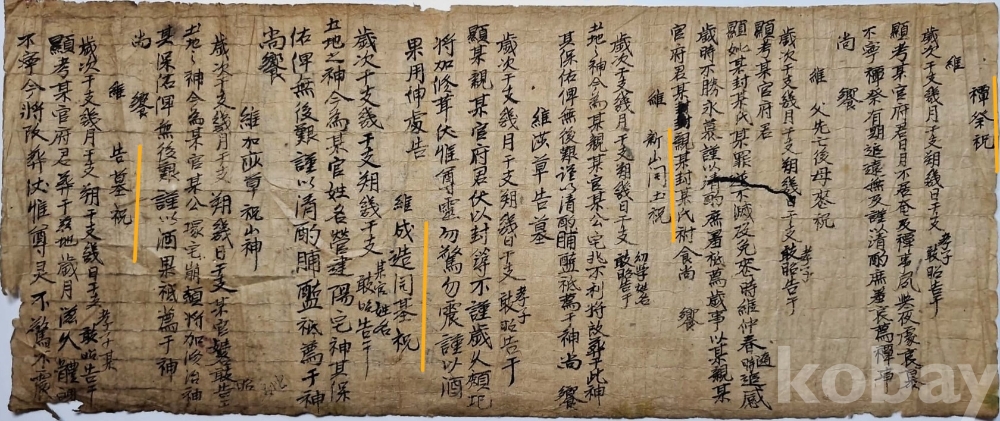 禫祭祝
維
歲次干支幾月干支朔幾日干支 孝子 敢昭告于
顯考某官府君日月不居奄及禫事夙興夜處哀慕
不寧禫祭有期追遠無及謹以淸酌庶羞哀薦禫事
尚 饗
維 父先亡後母葬祝
歲次干支幾月干支朔幾日干支 孝子 敢昭告于
顯考某官府君
顯妣某封某氏某罪 不滅歲免喪時維仲春 追感
歲時不勝永慕謹以淸酌庶羞祗薦歲事以某親某
官府君某親某封某氏祔食尚 饗
維 新山開土祝
歲次干支幾月干支朔幾日干支 幼學姓名 敢昭告于
土地之神今為某親某官某公宅兆不利將改葬于此神
其保佑俾無後艱謹以淸酌脯醢祗薦于神尚 饗
維 莎草告墓
歲次干支幾月干支朔幾日干支 孝子 敢昭告于
顯某親某官府君伏以封築不謹歲久頹圮
將加修葺伏惟尊靈勿驚勿震謹以酒
果用伸虔告
維 成造開基祝
歲次干支幾月干支朔幾干支 某官姓名 敢昭告于
土地之神今為某官姓名營建陽宅神其保
佑俾無後艱謹以淸酌脯醢祗薦于神
尚饗
維加莎草祝山神
歲次干支幾月干支朔幾日干支某官 敢昭告于
土地之神今為某官某公塚宅崩頹將加修治神
其保佑俾無後艱謹以酒果祗薦于神
尚 饗
維 告墓祝
歲次干支幾月干支朔干支幾日干支 孝子某 敢昭告于
顯考某官府君葬于玆地歲月滋久體魄
不寧今將改葬伏惟尊灵不驚不震
kobay